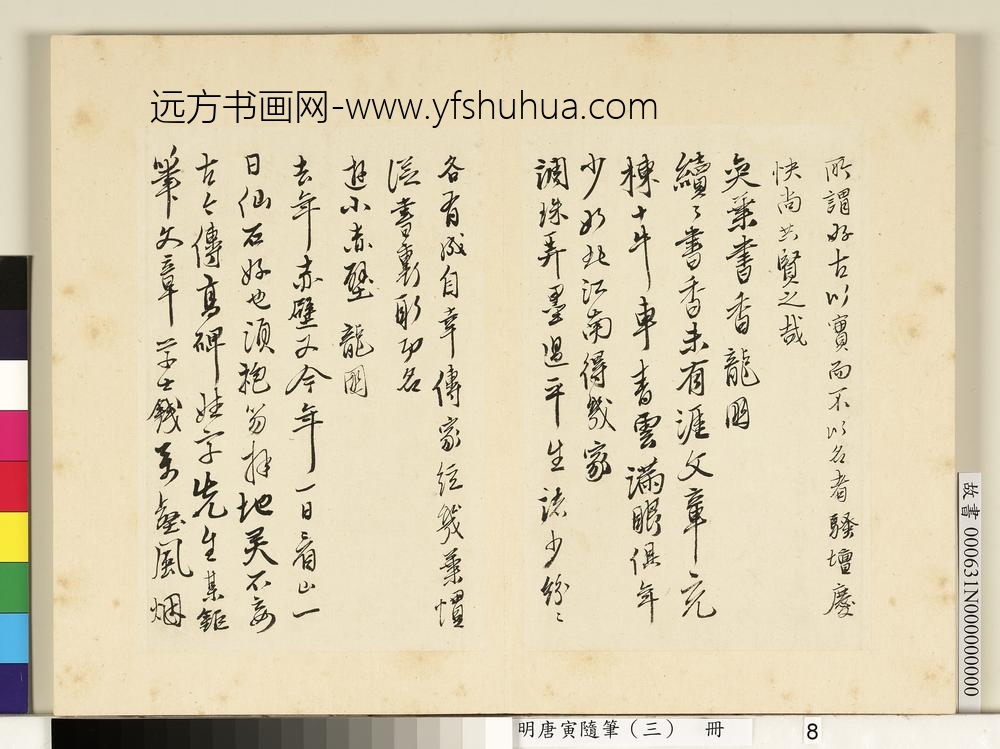 远方书画网-www.yfshuhua.com
所謂好古以實而不以名者騷壇慶
快尚共賢之哉
奕葉書香 龍岡
續〻書香未有涯文章充
棟十牛車青雲滿眼俱年
少如此江南得幾家
調珠弄墨過平生諸少紛〻
各有成自幸傳家經幾葉慣
從書裏取功名
遊小赤壁 龍岡
去年赤壁又今年一日看山一
日仙石好也須抱笏拜地灵不妄
古今傳高碑姓字先生某鉅
筆文章學士錢 壺風烟
故書 000631N000000000
明唐寅隨筆（三） 冊
8